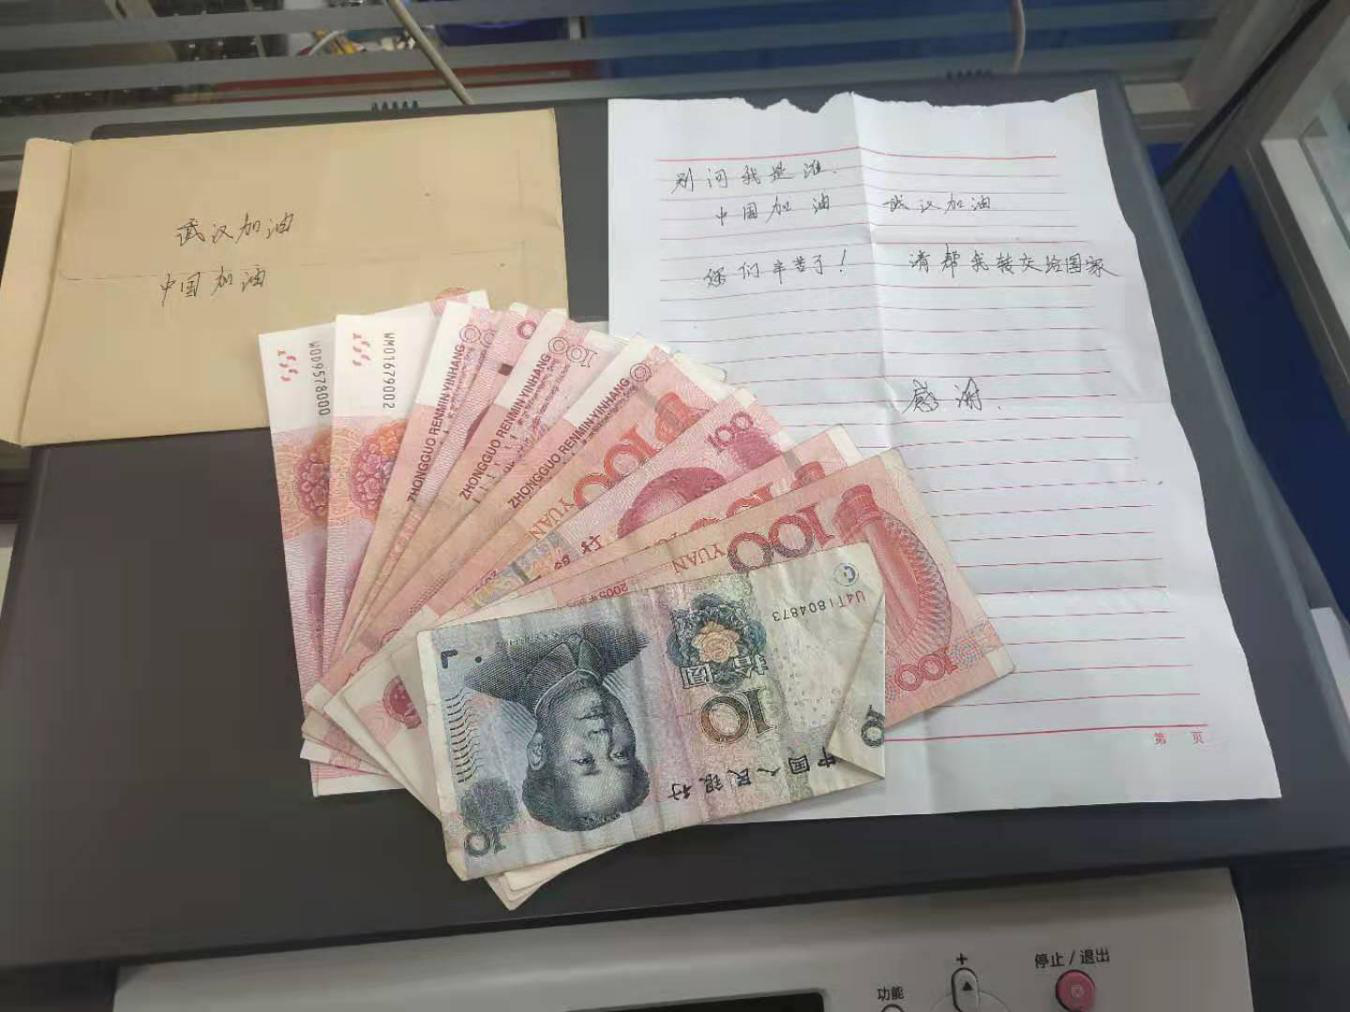 武汉加油
中国加油
别问我是谁.
中国加油 武汉加油
您们辛苦了! 请帮我转交给国家
感谢.
第 页
W0D9578000
WM01679002
ZHONGGUO RENMIN YINHANG
ZHONGGUO RENMIN YINHANG
ZHONGGUO RENMIN YINHANG
100
100
YUAN
100
100
YUAN
100
2005年
U4T1804873
拾圆
10
中国人民银行
10
功能
+
停止/退出